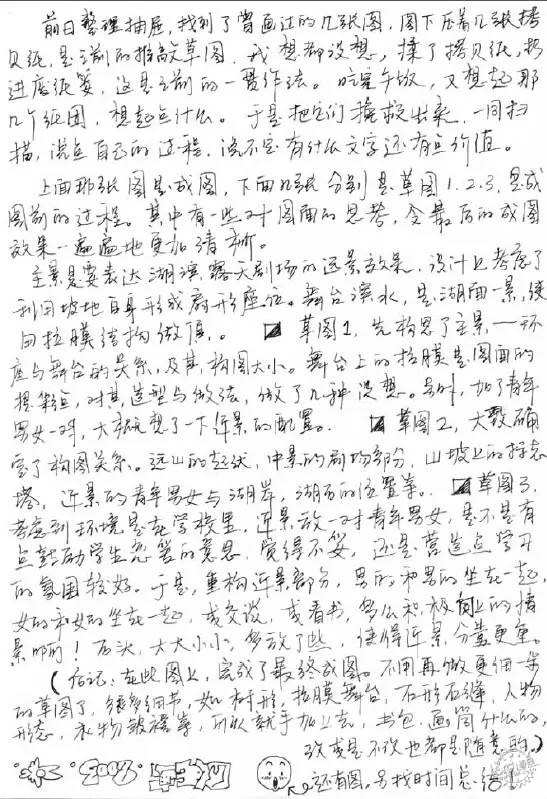 前日整理抽屉，找到了曾画过的几张图，图下压着几张拷
贝纸，是之前的推敲草图，我想都没想，揉了拷贝纸，扔
进废纸篓，这是之前的一贯作法。吃完午饭，又想起那
几个纸团，想起点什么。于是把它们抢救出来，一同扫
描，说点自己的过程，说不定有什么文字还有点价值。
上面那张图是成图，下面几张分别是草图1.2.3，是成
图前的过程。其中有一些对图面的思考，令最后的成图
效果一遍遍地更加清晰。
主景是要表达湖滨露天剧场的远景效果，设计上考虑了
利用坡地自身形成扇形座位。舞台滨水，是湖面一景，使
用拉膜结构做顶。草图1，先构思了主景——环
座与舞台的关系，及其构图大小。舞台上的拉膜是图面的
提点，对其造型与做法，做了几种设想。另外，加了青年
男女一对，大概想了一下近景的配置。草图2，大致确
定了构图关系。远山的起伏，中景的剧场部分，山坡上的标志
塔，近景的青年男女与湖岸，湖石的位置等。草图3，
考虑到环境是在学校里，近景放一对青年男女，是不是有
点鼓励学生恋爱的意思，觉得不妥，还是营造点学习
的氛围较好。于是，重构近景部分，男的和男的坐在一起，
女的和女的坐在一起，或交谈，或看书，多么积极向上的情
景啊！石头，大大小小，多放了些，使得近景分量更重。
（后记：在此图上，完成了最终成图。不用再做更细一步
的草图了，很多细节，如树形，拉膜舞台，石形石缝，人物
形态，衣物皱褶等，所以就手加上去，书包、画筒什么的，
改或是不改也都是随意的。）
2009
还有图。另找时间总结！